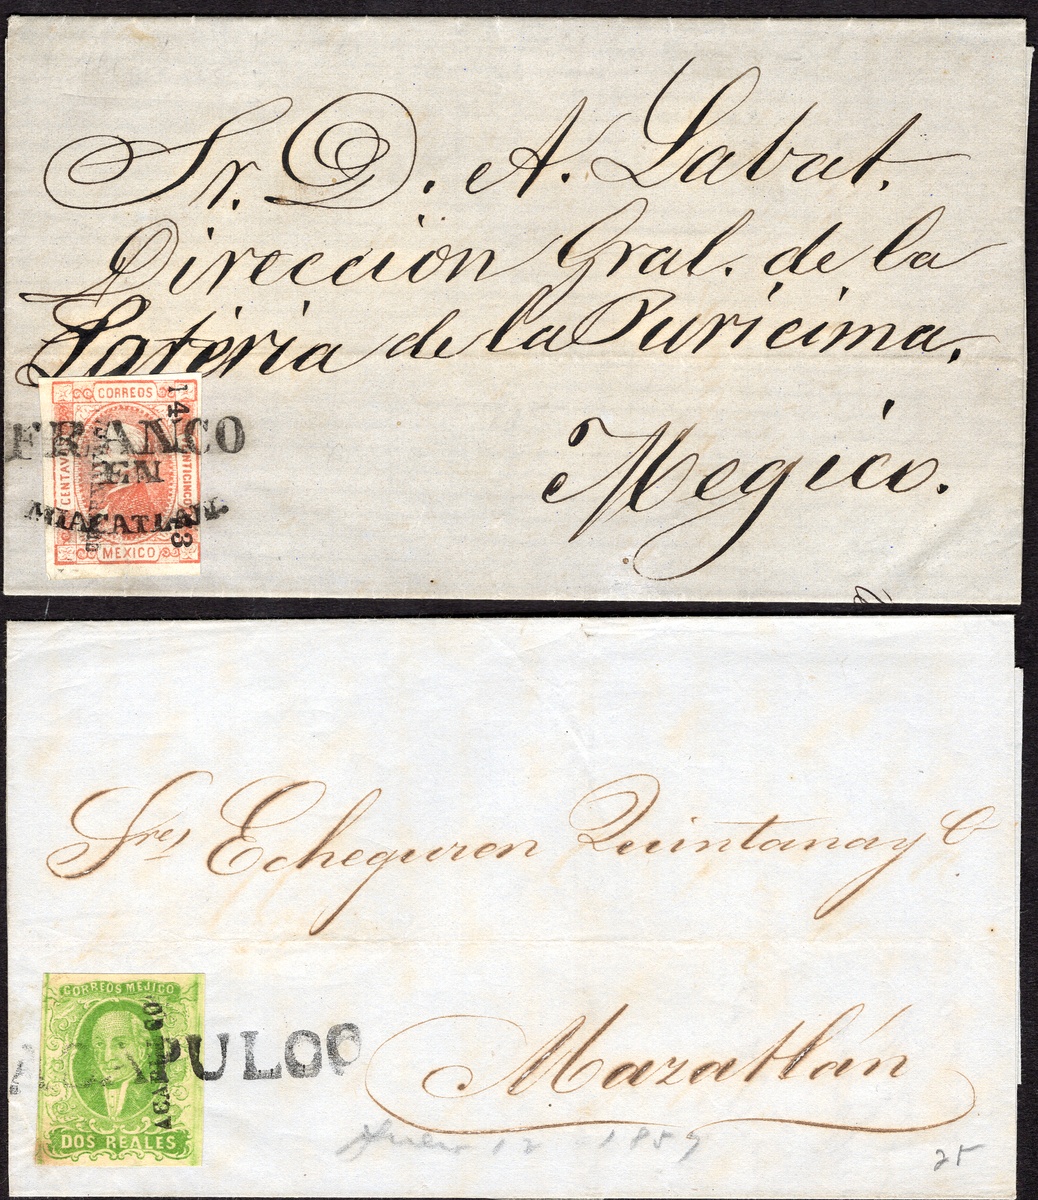 Sr. D. A. Labat.
Direccion Gral. de la
Loteria de la Puricima.
Megico.
CORREOS
CENTAVOS
VEINTICINCO
MEXICO
14
73
FRANCO
EN
MIACATLAN.
Sres Echeguren Quintana y C
Mazatlán
CORREOS MEJICO
DOS REALES
ACAPULCO
ACAPULCO
12 - 1857
25